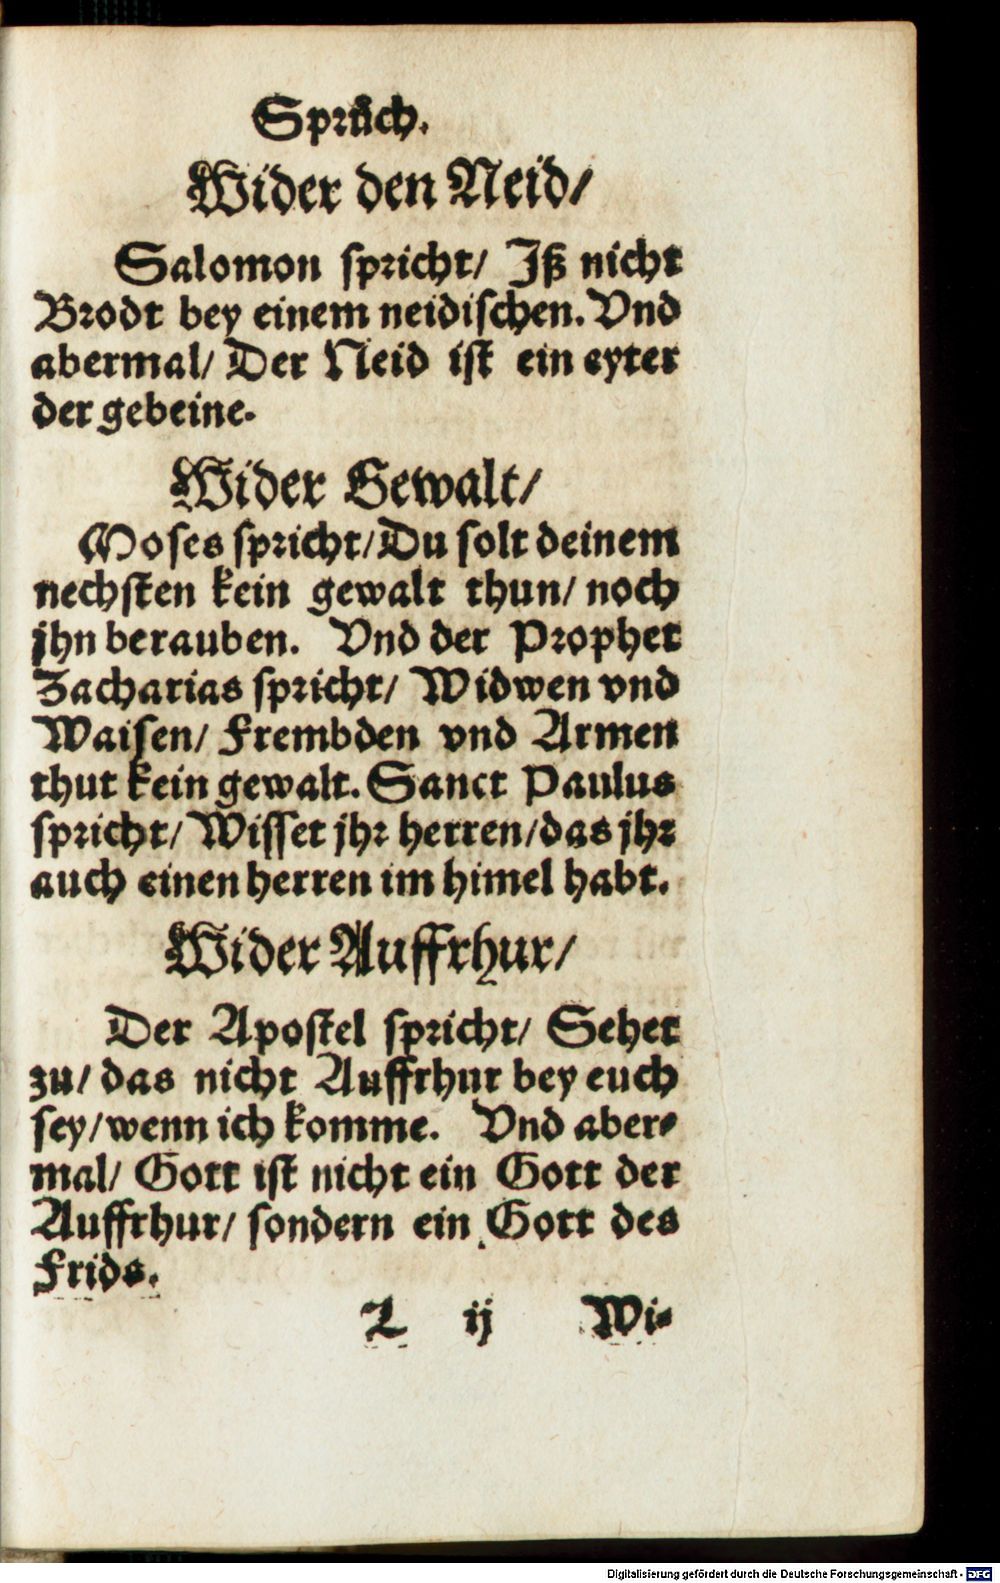 Sprůch.
Wider den Neid/
Salomon spricht/ Jß nicht
Brodt bey einem neidischen. Vnd
abermal/ Der Neid ist ein eyter
der gebeine.
Wider Gewalt/
Moses spricht/ Du solt deinem
nechsten kein gewalt thun/ noch
jhn berauben. Vnd der Prophet
Zacharias spricht/ Widwen vnd
Waisen/ Frembden vnd Armen
thut kein gewalt. Sanct Paulus
spricht/ Wisset jhr herren/ das jhr
auch einen herren im himel habt.
Wider Auffrhur/
Der Apostel spricht/ Sehet
zu/ das nicht Auffrhur bey euch
sey/ wenn ich komme. Vnd aber⸗
mal/ Gott ist nicht ein Gott der
Auffrhur/ sondern ein Gott des
Frids.
L ij Wi⸗
Digitalisierung gefördert durch die Deutsche Forschungsgemeinschaft - DFG